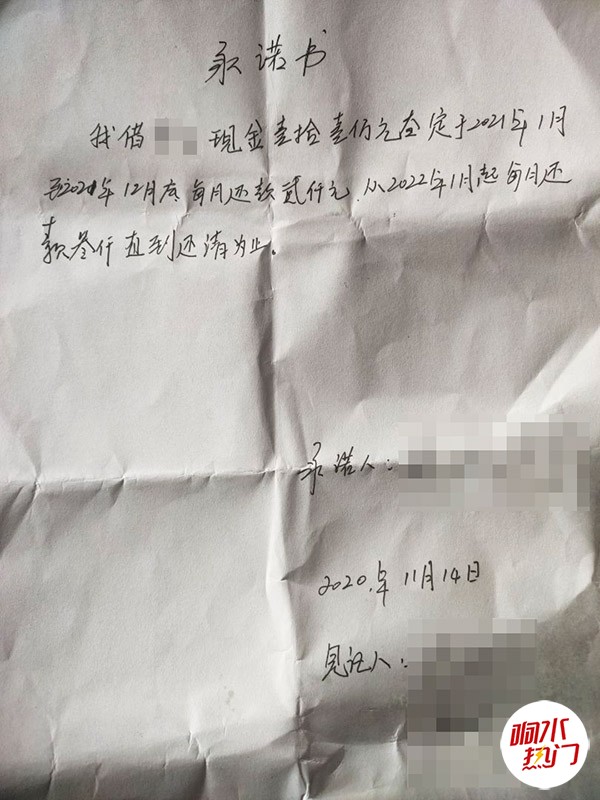 承诺书
我借 现金壹拾壹万元在定于2021年1月
至2021年12月底每月还款贰仟元.从2022年1月起每月还
款叁仟直到还清为止。
承诺人:
2020.年11月14日
见证人:
响水
热门